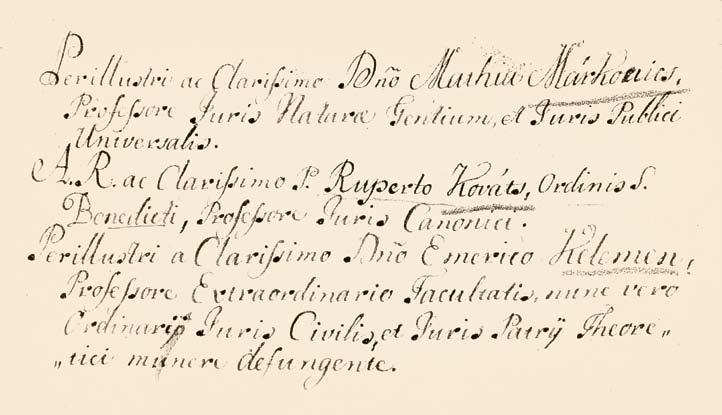 Perillustri ac Clarissimo Dño Mathiæ Márkovics,
Professore Juris Naturæ Gentium, et Juris Publici
Universalis.
A. R. ac Clarissimo P. Ruperto Kováts, Ordinis S.
Benedicti, Professore Juris Canonici.
Perillustri a Clarissimo Dño Emerico Kelemen,
Professore Extraordinario Facultatis, nunc vero
Ordinarij Juris Civilis, et Juris Patrij Theore„
„tici munere defungente.